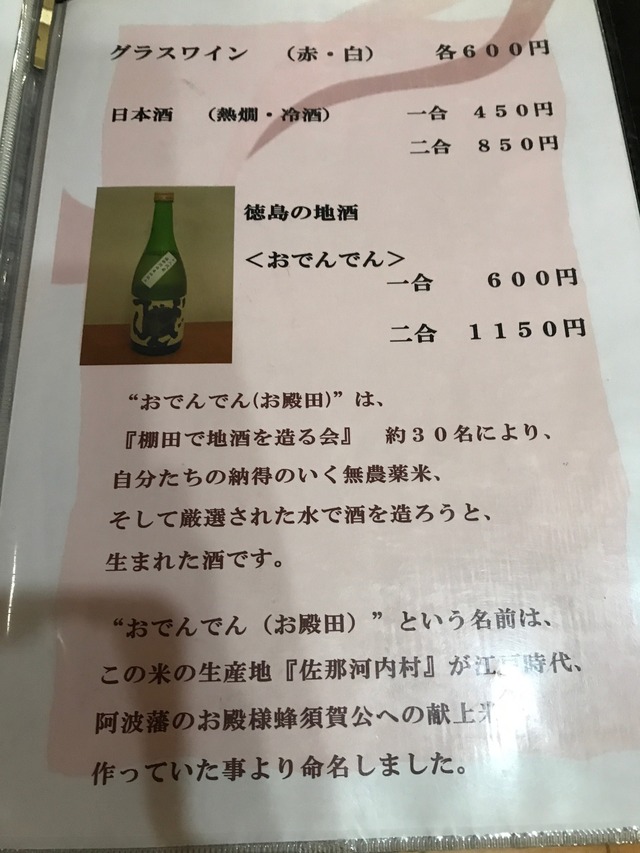 グラスワイン （赤・白） 各６００円
日本酒 （熱燗・冷酒） 一合 ４５０円
二合 ８５０円
徳島の地酒
＜おでんでん＞
一合 ６００円
二合 １１５０円
“おでんでん(お殿田)”は、
『棚田で地酒を造る会』 約３０名により、
自分たちの納得のいく無農薬米、
そして厳選された水で酒を造ろうと、
生まれた酒です。
“おでんでん（お殿田）”という名前は、
この米の生産地『佐那河内村』が江戸時代、
阿波藩のお殿様蜂須賀公への献上米
作っていた事より命名しました。